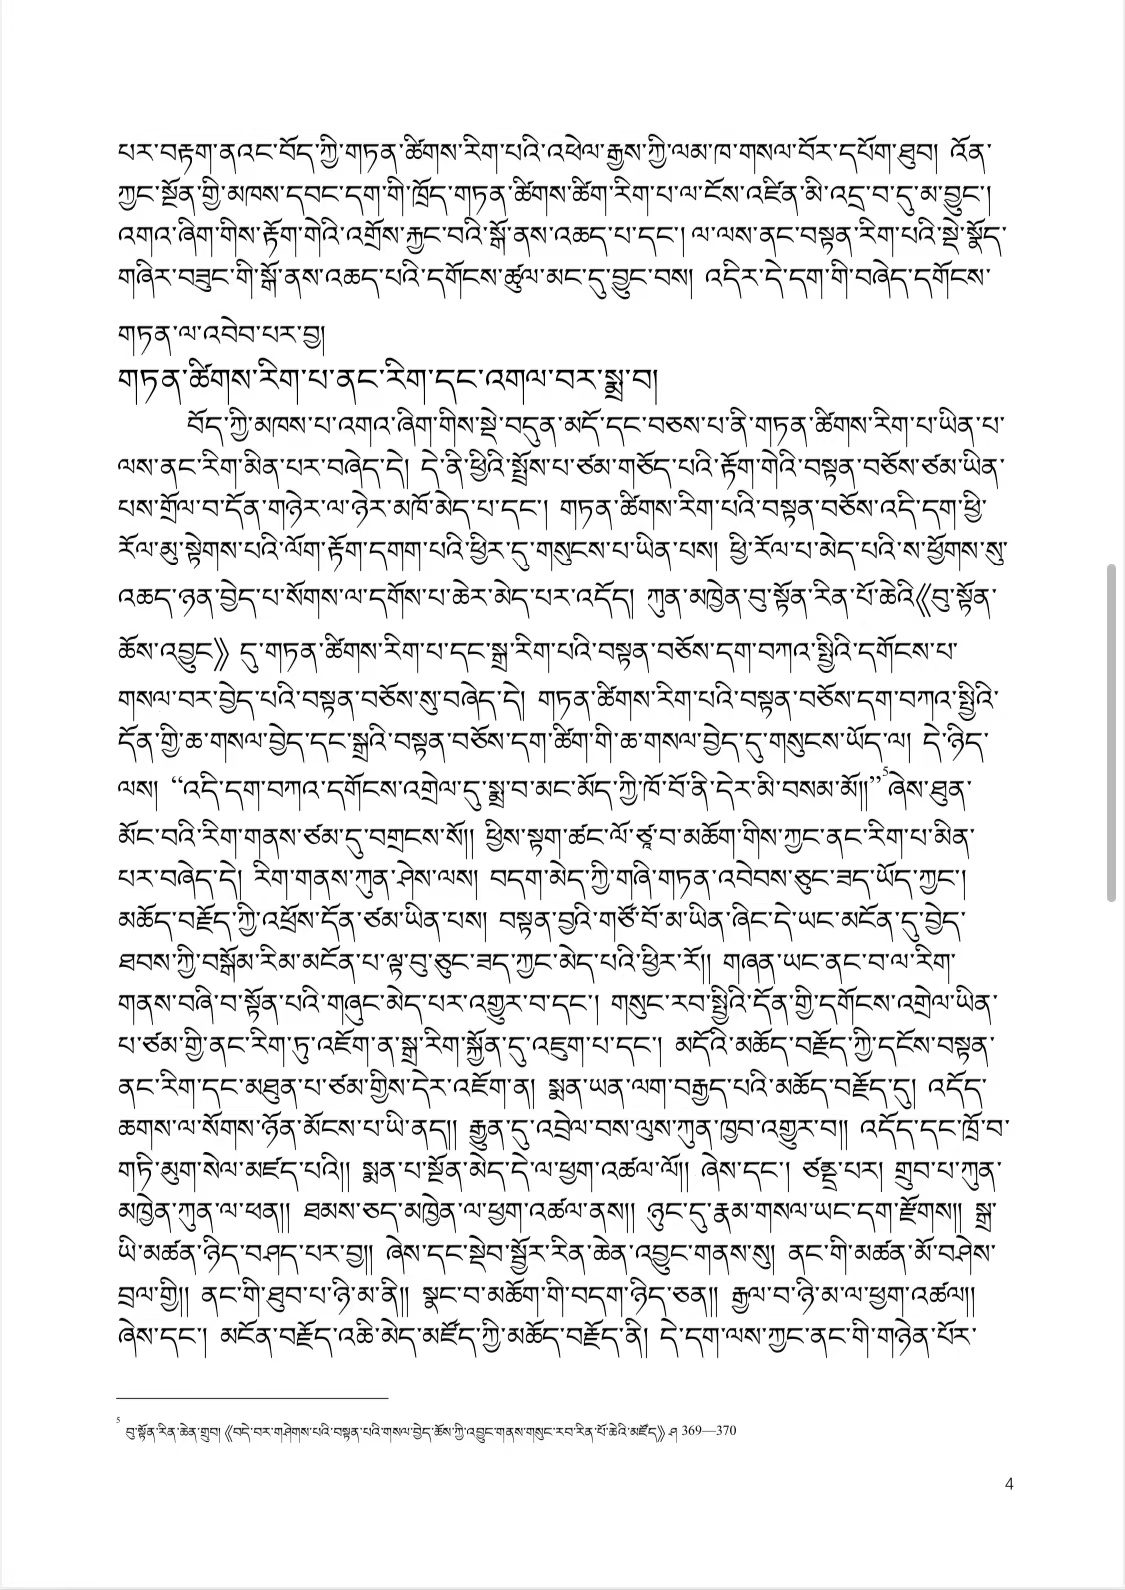 པར་བརྟག་ནའང་བོད་ཀྱི་གཏན་ཚིགས་རིག་པའི་འཕེལ་རྒྱས་ཀྱི་ལམ་ཁ་གསལ་བོར་དཔོག་ཐུབ། འོན་
ཀྱང་སྔོན་གྱི་མཁས་དབང་དག་གི་ཁྲོད་གཏན་ཚིགས་ཚིག་རིག་པ་ལ་ངོས་འཛིན་མི་འདྲ་བ་དུ་མ་བྱུང་།
འགའ་ཞིག་གིས་རྟོག་གེའི་འགྲོས་རྐྱང་བའི་སྒོ་ནས་འཆད་པ་དང་། ལ་ལས་ནང་བསྟན་རིག་པའི་སྡེ་སྣོད་
གཞིར་བཟུང་གི་སྒོ་ནས་འཆད་པའི་དགོངས་ཚུལ་མང་དུ་བྱུང་བས། འདིར་དེ་དག་གི་བཞེད་དགོངས་
གཏན་ལ་འབེབ་པར་བྱ།
གཏན་ཚིགས་རིག་པ་ནང་རིག་དང་འགལ་བར་སྨྲ་བ།
བོད་ཀྱི་མཁས་པ་འགའ་ཞིག་གིས་སྡེ་བདུན་མདོ་དང་བཅས་པ་ནི་གཏན་ཚིགས་རིག་པ་ཡིན་པ་
ལས་ནང་རིག་མིན་པར་བཞེད་དེ། དེ་ནི་ཕྱིའི་སྤྲོས་པ་ཙམ་གཅོད་པའི་རྟོག་གེའི་བསྟན་བཅོས་ཙམ་ཡིན་
པས་གྲོལ་བ་དོན་གཉེར་ལ་ཉེར་མཁོ་མེད་པ་དང་། གཏན་ཚིགས་རིག་པའི་བསྟན་བཅོས་འདི་དག་ཕྱི་
རོལ་མུ་སྟེགས་པའི་ལོག་རྟོག་དགག་པའི་ཕྱིར་དུ་གསུངས་པ་ཡིན་པས། ཕྱི་རོལ་པ་མེད་པའི་ས་ཕྱོགས་སུ་
འཆད་ཉན་བྱེད་པ་སོགས་ལ་དགོས་པ་ཆེར་མེད་པར་འདོད། ཀུན་མཁྱེན་བུ་སྟོན་རིན་པོ་ཆེའི《བུ་སྟོན་
ཆོས་འབྱུང》དུ་གཏན་ཚིགས་རིག་པ་དང་སྒྲ་རིག་པའི་བསྟན་བཅོས་དག་བཀའ་སྤྱིའི་དགོངས་པ་
གསལ་བར་བྱེད་པའི་བསྟན་བཅོས་སུ་བཞེད་དེ། གཏན་ཚིགས་རིག་པའི་བསྟན་བཅོས་དག་བཀའ་སྤྱིའི་
དོན་གྱི་ཆ་གསལ་བྱེད་དང་སྒྲའི་བསྟན་བཅོས་དག་ཚིག་གི་ཆ་གསལ་བྱེད་དུ་གསུངས་ཡོད་ལ། དེ་ཉིད་
ལས། “འདི་དག་བཀའ་དགོངས་འགྲེལ་དུ་སྨྲ་བ་མང་མོད་ཀྱི་ཁོ་བོ་ནི་དེར་མི་བསམ་མོ།།”5ཞེས་ཐུན་
མོང་བའི་རིག་གནས་ཙམ་དུ་བགྲངས་སོ།། ཕྱིས་སྟག་ཚང་ལོ་ཙཱ་བ་མཆོག་གིས་ཀྱང་ནང་རིག་པ་མིན་
པར་བཞེད་དེ། རིག་གནས་ཀུན་ཤེས་ལས། བདག་མེད་ཀྱི་གཞི་གཏན་འབེབས་ཅུང་ཟད་ཡོད་ཀྱང་།
མཆོད་བརྗོད་ཀྱི་འཕྲོས་དོན་ཙམ་ཡིན་པས། བསྟན་བྱའི་གཙོ་བོ་མ་ཡིན་ཞིང་དེ་ཡང་མངོན་དུ་བྱེད་
ཐབས་ཀྱི་བསྒོམ་རིམ་མངོན་པ་ལྟ་བུ་ཅུང་ཟད་ཀྱང་མེད་པའི་ཕྱིར་རོ།། གཞན་ཡང་ནང་བ་ལ་རིག་
གནས་བཞི་བ་སྟོན་པའི་གཞུང་མེད་པར་འགྱུར་བ་དང་། གསུང་རབ་སྤྱིའི་དོན་གྱི་དགོངས་འགྲེལ་ཡིན་
པ་ཙམ་གྱི་ནང་རིག་ཏུ་འཇོག་ན་སྒྲ་རིག་སྐྱོན་དུ་འཇུག་པ་དང་། མདོའི་མཆོད་བརྗོད་ཀྱི་དངོས་བསྟན་
ནང་རིག་དང་མཐུན་པ་ཙམ་གྱིས་དེར་འཇོག་ན། སྨན་ཡན་ལག་བརྒྱད་པའི་མཆོད་བརྗོད་དུ། འདོད་
ཆགས་ལ་སོགས་ཉོན་མོངས་པ་ཡི་ནད།། རྒྱུན་དུ་འབྲེལ་བས་ལུས་ཀུན་ཁྱབ་འགྱུར་བ།། འདོད་དང་ཁྲོ་བ་
གཏི་མུག་སེལ་མཛད་པའི།། སྨན་པ་སྔོན་མེད་དེ་ལ་ཕྱག་འཚལ་ལོ།། ཞེས་དང་། ཙནྡྲ་པར། གྲུབ་པ་ཀུན་
མཁྱེན་ཀུན་ལ་ཕན།། ཐམས་ཅད་མཁྱེན་ལ་ཕྱག་འཚལ་ནས།། ཉུང་དུ་རྣམ་གསལ་ཡང་དག་རྫོགས།། སྒྲ་
ཡི་མཚན་ཉིད་བཤད་པར་བྱ།། ཞེས་དང་སྡེབ་སྦྱོར་རིན་ཆེན་འབྱུང་གནས་སུ། ནང་གི་མཚན་མོ་བཤེས་
བྲལ་གྱི།། ནང་གི་ཐུབ་པ་ཉི་མ་ནི།། སྣང་བ་མཆོག་གི་བདག་ཉིད་ཅན།། རྒྱལ་བ་ཉི་མ་ལ་ཕྱག་འཚལ།།
ཞེས་དང་། མངོན་བརྗོད་འཆི་མེད་མཛོད་ཀྱི་མཆོད་བརྗོད་ནི། དེ་དག་ལས་ཀྱང་ནང་གི་གཉེན་པོར་
5 བུ་སྟོན་རིན་ཆེན་གྲུབ།《བདེ་བར་གཤེགས་པའི་བསྟན་པའི་གསལ་བྱེད་ཆོས་ཀྱི་འབྱུང་གནས་གསུང་རབ་རིན་པོ་ཆེའི་མཛོད》ཤ 369—370
4